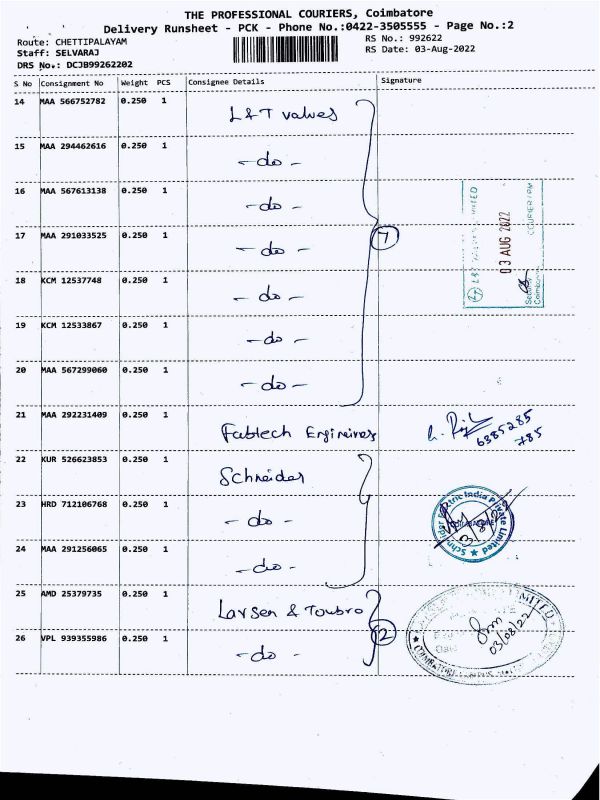 THE PROFESSIONAL COURIERS, Coimbatore
Delivery Runsheet - PCK - Phone No.:0422-3505555 - Page No.:2
Route: CHETTIPALAYAM RS No.: 992622
Staff: SELVARAJ RS Date: 03-Aug-2022
DRS No.: DCJB99262202
S No Consignment No Weight PCS Consignee Details Signature
14 MAA 566752782 0.250 1 L&T valves
15 MAA 294462616 0.250 1 -do-
16 MAA 567613138 0.250 1 -do-
17 MAA 291033525 0.250 1 -do- 7
18 KCM 12537748 0.250 1 -do-
19 KCM 12533867 0.250 1 -do-
20 MAA 567299060 0.250 1 -do-
03 AUG 2022
21 MAA 292231409 0.250 1 Fabtech Engineives
6385285
785
22 KUR 526623853 0.250 1 Schneider
23 HRD 712106768 0.250 1 -do-
Schneider Electric India Private Limited
3/8/22
24 MAA 291256065 0.250 1 -do-
25 AMD 25379735 0.250 1 Larsen & Toubro
26 VPL 939355986 0.250 1 -do- 2
LIMITED
Date
03/08/22